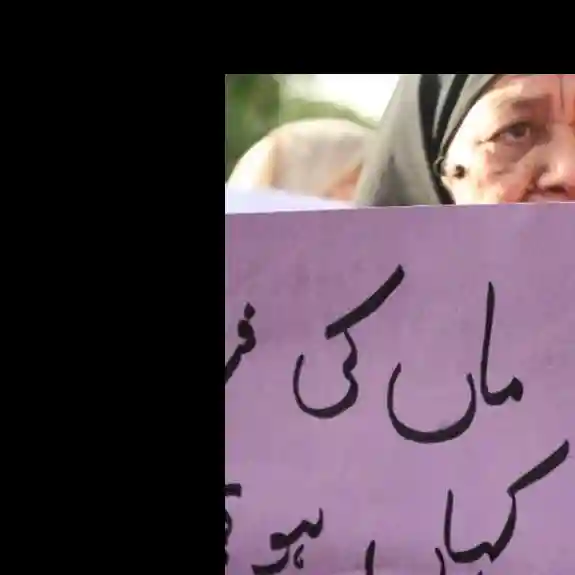 ماں کی
کہاں ہو